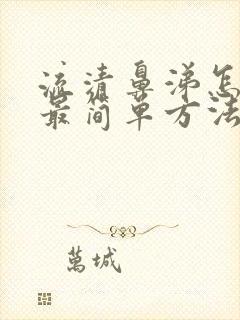 流清鼻涕怎
最简单方法
萬城